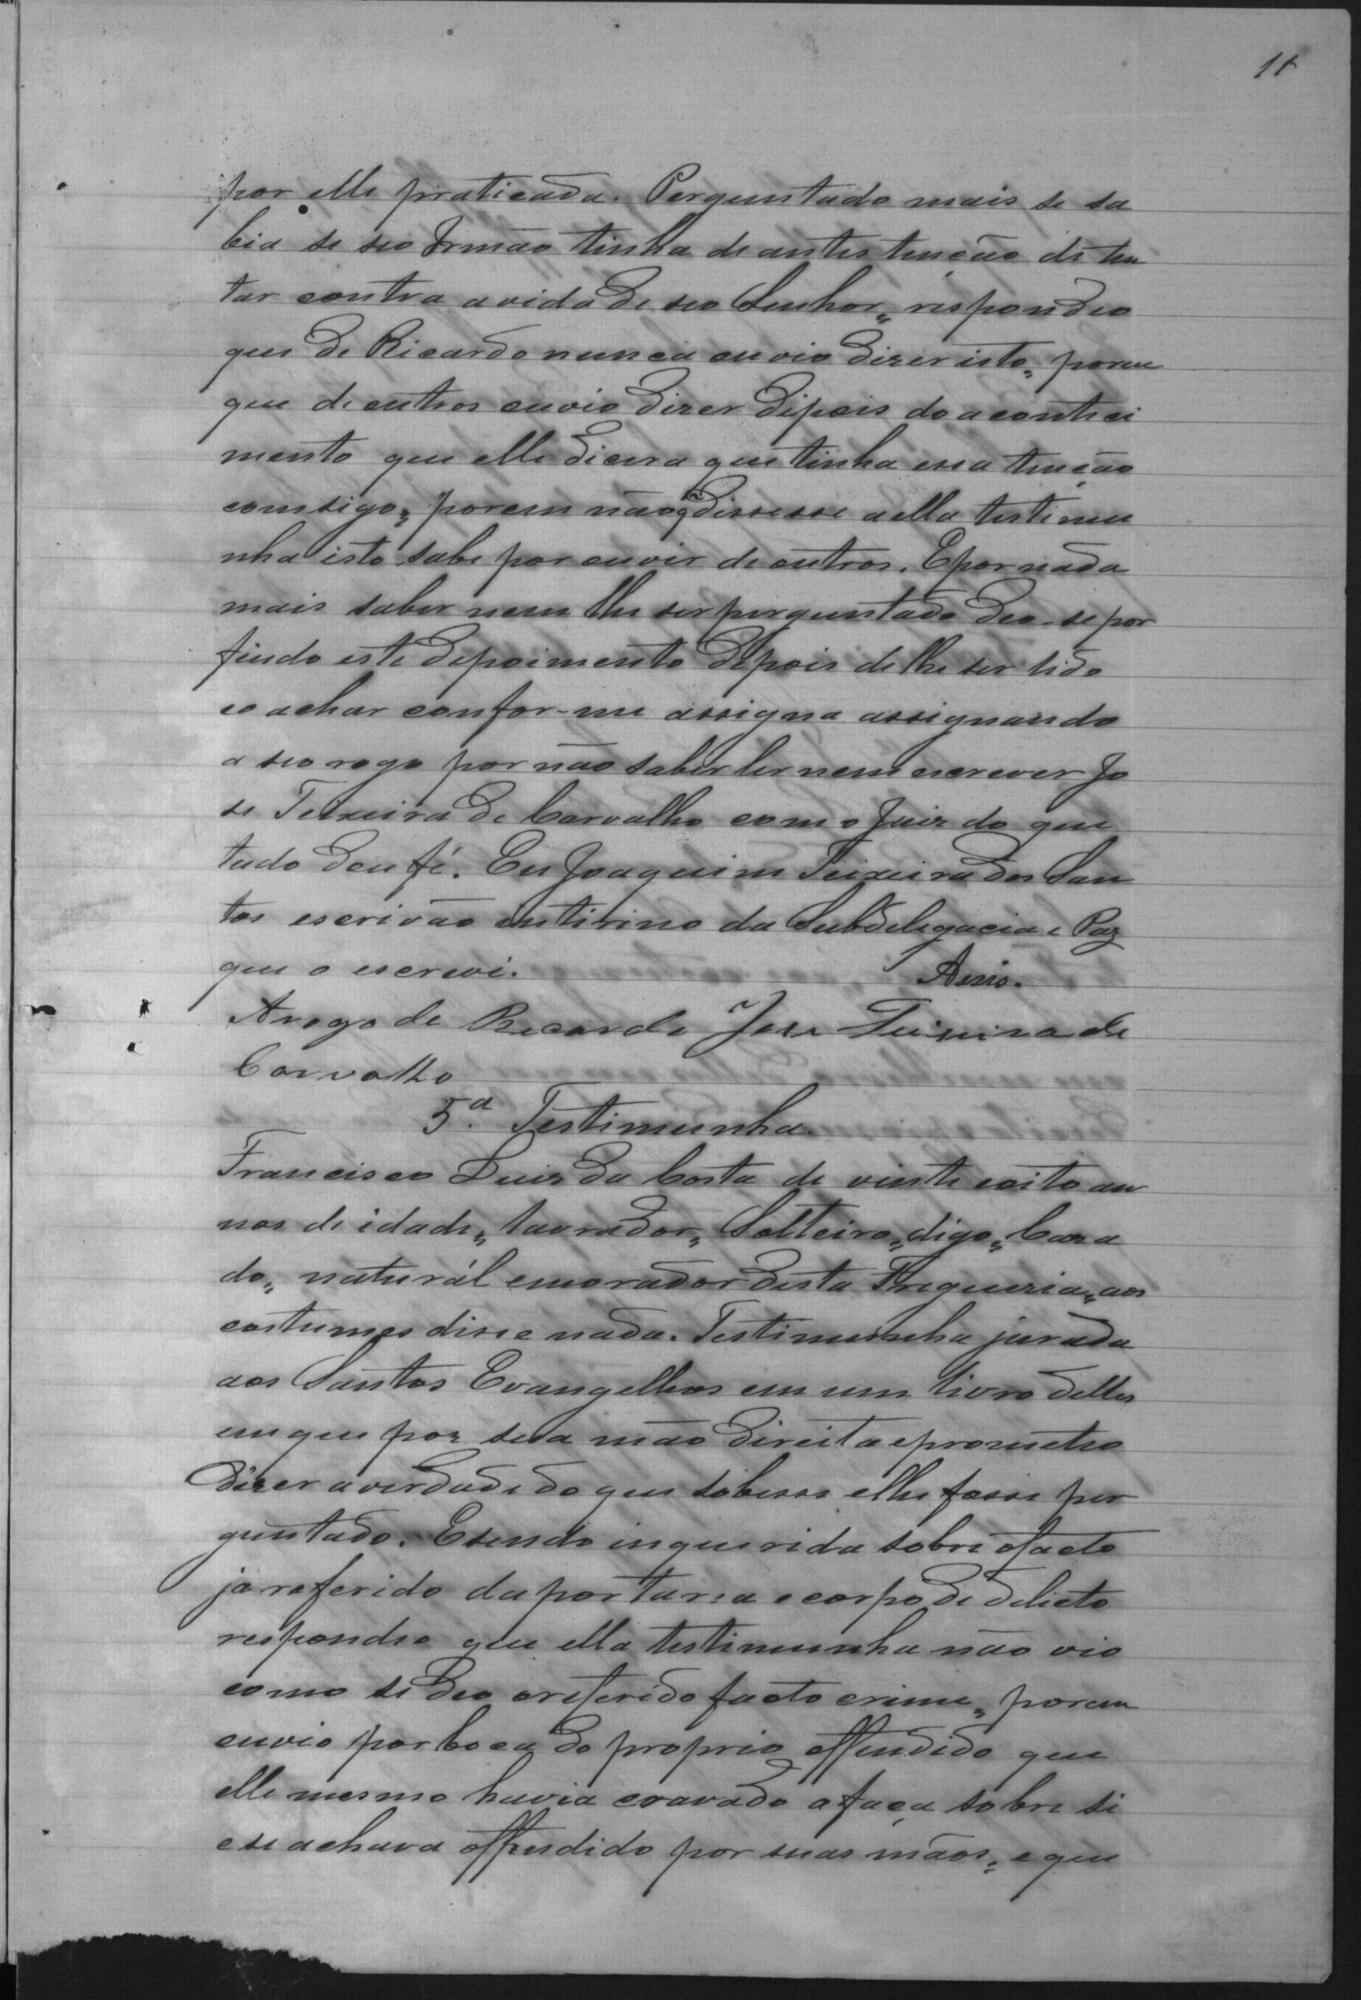 11
por elle praticada. Perguntado mais se sa
bia se seo Irmão tinha de antes tenção de ten
tar contra a vida de seo Senhor, respondeo
que de Ricardo nunca ouvio dizer isto, porem
que de outros ouvio dizer dipois do acontici
mento que elle dicera que tinha essa tenção
comsigo, porem não q̃ dissesse a ella testimu
nha isto sabe por ouvir de outros. E por nada
mais saber nem lhe ser perguntado deo-se por
findo este depoimento depois de lhe ser lido
eo achar confor-me assigna assignando
a seo rogo por não saber ler nem escrever Jo
se Teixeira de Carvalho com o Juiz do que
tudo dou fé. Eu Joaquim Teixeira dos San
tos escrivão intirino da Subdelegacia e Paz
que o escrevi. Assis.
Arogo de Recardo Jose Teixeira de
Carvalho
5.ª Testimunha.
Francisco Luiz da Costa de vinte eoito an
nos de idade, lavrador, Solteiro, digo, Caza
do, naturál emorador desta Freguezia, aos
costumes disse nada. Testimunha jurada
aos Santos Evangelhos em um livro delles
em que poz sua mão direita eprometeo
dizer averdade do que soubesse elhe fosse per
guntado. Esendo inquerida sobre ofacto
ja referido da portaria e corpo de delicto
respondeo que ella testimunha não vio
como se deo oreferido facto crime, porem
ouvio por boca do proprio offendido que
elle mesmo havia cravado a faca sobre si
ese achava offendido por suas mãos, e que